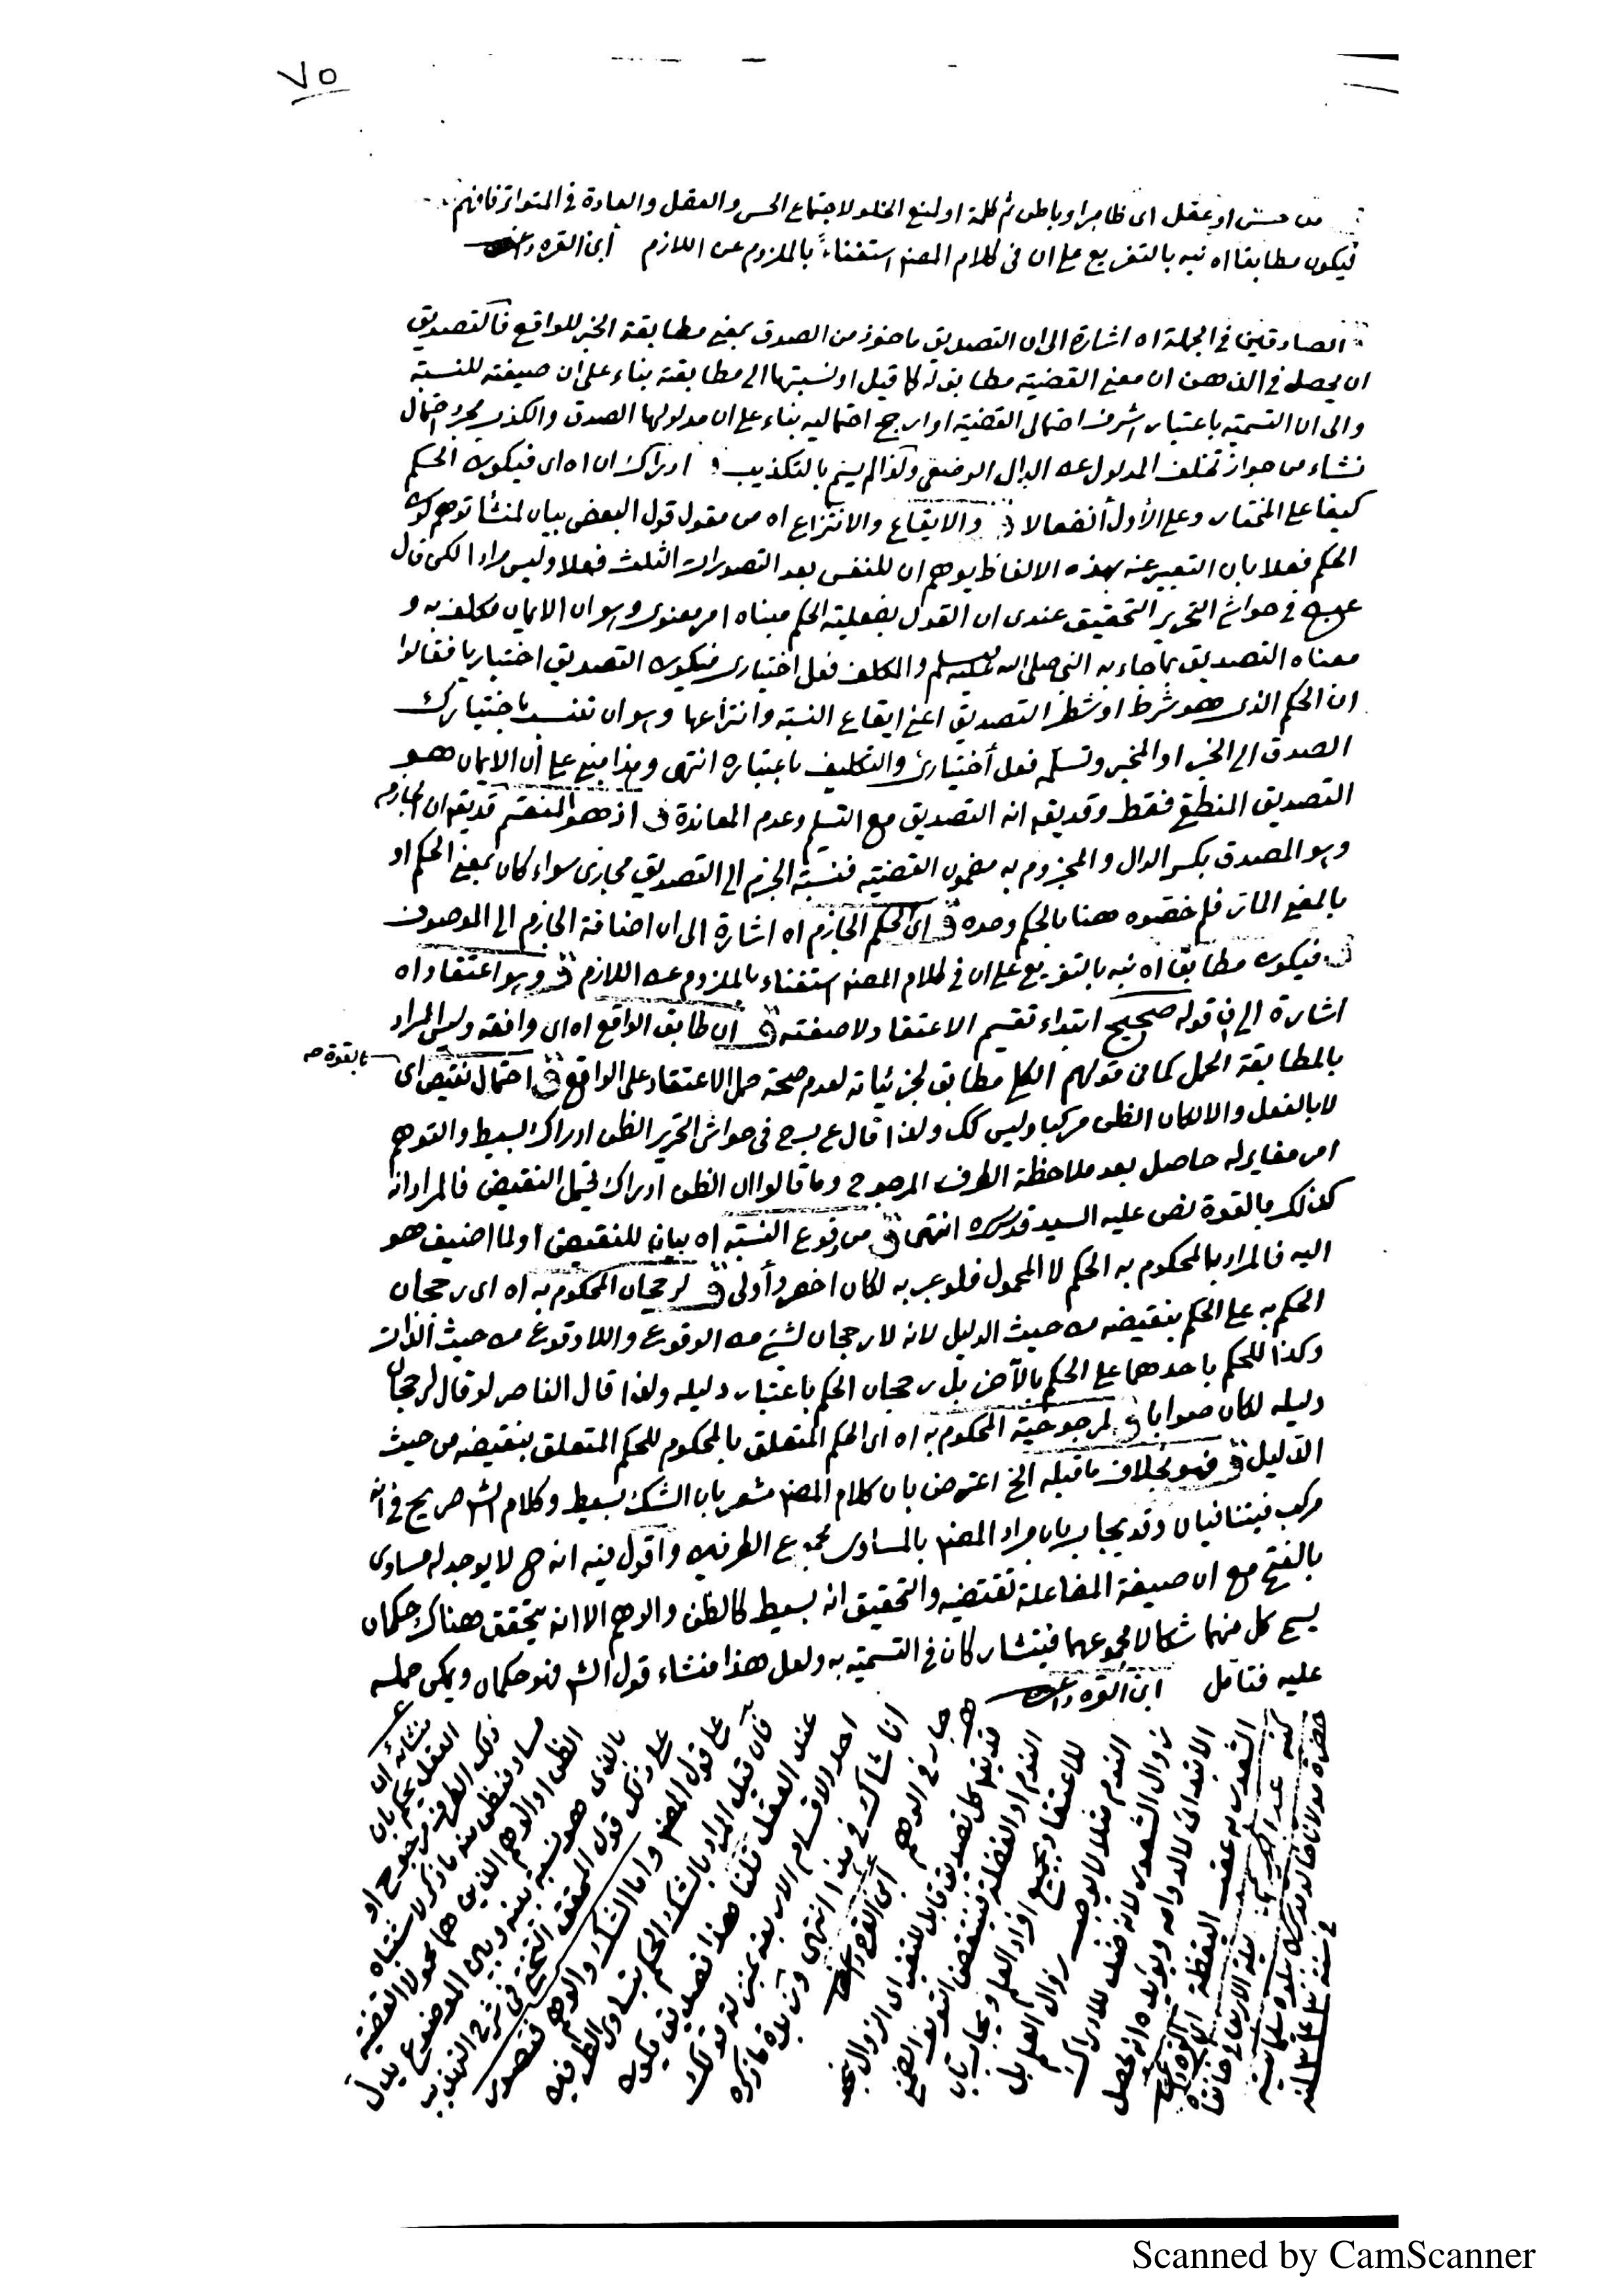 ٧٥
من حس او عقل اى ظاهر او باطن ثم كلمة او لمنع الخلو لاجتماع الحس والعقل والعادة فى المتواتر فافهم
فيكون مطابقا اه نبه بالتفريع على ان فى كلام المصنف استغناء بالملزوم عن اللازم ابن القره داغى
الصادقين فى الجملة اه اشارة الى ان التصديق ماخوذ من الصدق بمعنى مطابقة الخبر للواقع فالتصديق
ان يحصل فى الذهن ان معنى القضية مطابق له كما قيل او نسبتها الى مطابقته بناء على ان صيغته للنسبة
والى ان التسمية باعتبار اشرف احتمالى القضية او ارجح احتماليه بناء على ان مدلولها الصدق والكذب مجرد احتمال
نشاء من جواز تخلف المدلول عن الدال الوضعى ولذا لم يسم بالتكذيب ادراك ان اه اى فيكون الحكم
كيفا على المختار وعلى الأول أنفعالا ق والايقاع والانتزاع اه من مقول قول البعض بيان لمنشا توهم كون
الحكم فعلا بان التعبير عنه بهذه الالفاظ يوهم ان للنفس بعد التصورات الثلث فعلا وليس مرادا لكن قال
فى حواشى التحرير التحقيق عندى ان القول بفعلية الحكم مبناه امر معنوى وهو ان الايمان مكلف به و
معناه التصديق بما جاء به النبى صلى الله عليه وسلم والمكلف فعل اختيارى فيكون التصديق اختياريا فقالوا
ان الحكم الذى هو شرط او شطر التصديق اعنى ايقاع النسبة وانتزاعها وهو ان تنسب باختيارك
الصدق الى الخبر او المخبر وتسلمه فعل أختيارى والتكليف باعتباره انتهى وهذا مبنى على أن الايمان هو
التصديق المنطقى فقط وقد يقه انه التصديق مع التسليم وعدم المعاندة ق اذ هو المنقسم قد يقه ان الجازم
وهو المصدق بكسر الدال والمجزوم به مضمون القضية فنسبة الجزم الى التصديق مجازى سواء كان بمعنى الحكم او
بالمعنى المار فلم خصوه هنا بالحكم وحده ق اى الحكم الجازم اه اشارة الى ان اضافة الجازم الى الموصوف
ق فيكون مطابقا اه نبه بالتفريع على ان فى كلام المصنف استغناء بالملزوم عن اللازم ق وهو اعتقاد اه
اشارة الى ان قوله صحيح ابتداء تقسيم الاعتقاد لا صفته ق ان طابق الواقع اه اى وافقه وليس المراد
بالمطابقة الحمل كما فى قولهم الكلى مطابق لجزئياته لعدم صحة حمل الاعتقاد على الواقع ق احتمال نقيض اى
بالقوة صح
لا بالفعل والا لكان الظن مركبا وليس كك ولذا قال فى حواشى التحرير الظن ادراك بسيط والتوهم
امر مغاير له حاصل بعد ملاحظة الطرف المرجوح وما قالوا ان الظن ادراك يحتمل النقيض فالمراد انه
كذلك بالقوة نص عليه السيد قدس سره انتهى ق من وقوع النسبة اه بيان للنقيض او لما اضيف هو
اليه فالمراد بالمحكوم به الحكم لا المحمول فلو عبر به لكان اخصر وأولى ق لرجحان المحكوم به اه اى رجحان
الحكم به على الحكم بنقيضه من حيث الدليل لانه لا رجحان لشئ من الوقوع واللا وقوع من حيث الذات
وكذا للحكم باحدهما على الحكم بالآخر بل رجحان الحكم باعتبار دليله ولذا قال الناصر لو قال لرجحان
دليله لكان صوابا ق لمرجوحية المحكوم به اه اى الحكم المتعلق بالمحكوم للحكم المتعلق بنقيضه من حيث
الدليل ق فهو بخلاف ما قبله الخ اعترض بان كلام المصنف مشعر بان الشك بسيط وكلام الش صريح فى انه
مركب فيتنافيان وقد يجاب بان مراد المصنف بالمساوى مجموع الطرفين واقول فيه انه ح لا يوجد له مساوى
بالفتح مع ان صيغة المفاعلة تقتضيه والتحقيق انه بسيط كالظن والوهم الا انه يتحقق هناك حكمان
يسمى كل منهما شكا لا مجموعهما فيتشاركان فى التسمية به ولعل هذا منشاء قول الش فهو حكمان ويمكن حمله
عليه فتأمل ابن القره داغى
منشائه ان
العقل يحكم بان
ذلك الطرف مرجوح او
مساو فنظن منه ما ذكر لاشتباه
الظن او الوهم الذين هما محمولا القضية
بالذى هو نسبة بينه وبين الموضوع يدل
على ذلك قول المحقق فى شرح التهذيب
على قول المصنف واما الشك والوهم فتصور
فأن قيل المراد بالشك الحكم بتساوى الطرفين
عند العقل قلنا هذا تصديق يكون
احد الاقسام الاربعة بمنزلة قولك
انا شاك فى هذا انتهى وقس عليه ما ذكره
جار فى الوهم ابن القره داغى
قد يقه كل تصديق قابل للتغير اى الزوال
النوم او الغفلة فينتقض التعريف الضمنى
للاعتقاد بجميع افراد العلم ويجاب بان
النوم مثلا لا يوجب زوال العلم بل
زوال الشعور لانه ضد للادراك
الابتدائى لا لدوامه ويؤيده انه يحصل
الشعور به عقيب اليقظة ابن القره داغى
كتبه عبد ليلة الاربعاء فى خانقاه
حضرة مولانا خالد قدس سره بلدة سليمانية